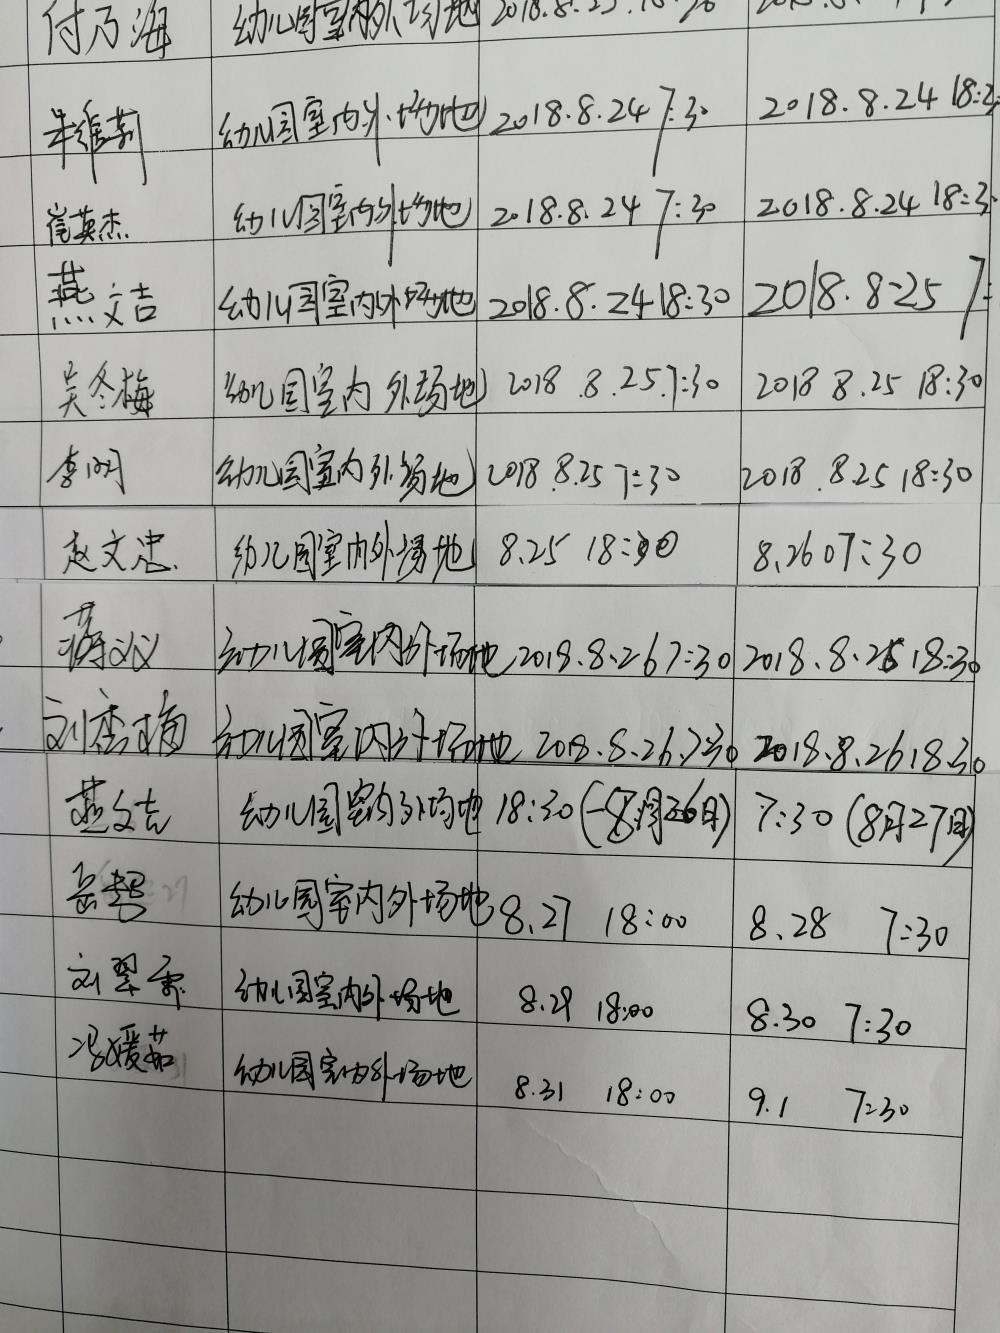 付乃海 幼儿园室内外场地 2018.8.23
朱维莉 幼儿园室内外场地 2018.8.24 7:30 2018.8.24 18:
崔英杰 幼儿园室内外场地 2018.8.24 7:30 2018.8.24 18:3
燕文吉 幼儿园室内外场地 2018.8.24 18:30 2018.8.25 7:
吴冬梅 幼儿园室内外场地 2018.8.25.7:30 2018 8.25 18:30
李明 幼儿园室内外场地 2018 8.25 7:30 2018.8.25 18:30
赵文忠 幼儿园室内外场地 8.25 18:00 8.26 07:30
蒋义 幼儿园室内外场地 2018.8.26 7:30 2018.8.26 18:30
刘杏梅 幼儿园室内外场地 2018.8.26.7:30 2018.8.26 18:30
燕文吉 幼儿园室内外场地 18:30(8月26日) 7:30(8月27日)
岳 幼儿园室内外场地 8.27 18:00 8.28 7:30
刘翠 幼儿园室内外场地 8.29 18:00 8.30 7:30
冯媛茹 幼儿园室内外场地 8.31 18:00 9.1 7:30